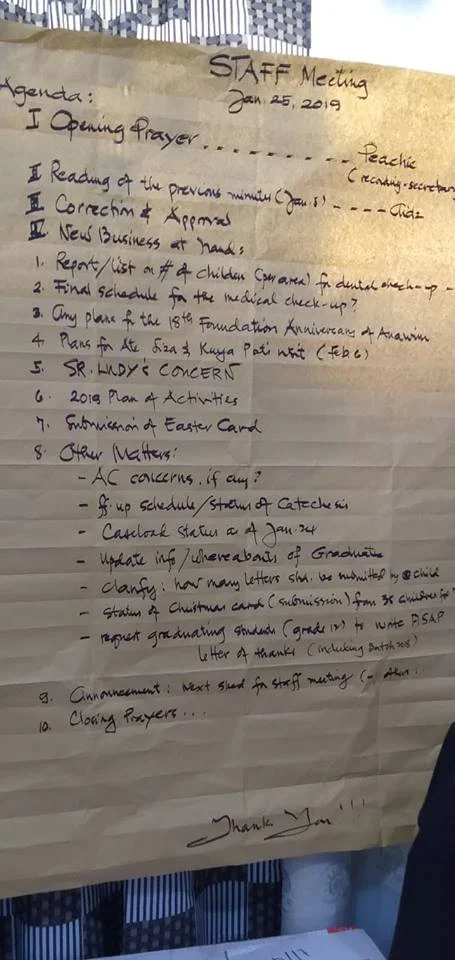 STAFF Meeting
Jan. 25, 2019
Agenda:
I Opening Prayer .......... Peachie
(recording-secretary
II Reading of the previous minutes (Jan. 8) ----
III Correction & Approval
IV New Business at hand:
1. Report/list on # of children (per area) for dental check-up -
2. Final schedule for the medical check-up?
3. Any plans for the 18th Foundation Anniversary of Anawim
4. Plans for Ate Liza & Kuya Pat's visit (Feb 6)
5. SR. LINDY'S CONCERN
6. 2019 Plan of Activities
7. Submission of Easter Card
8. Other Matters:
- AC concerns, if any?
- ff. up schedule/status of Catechesis
- Caseload Status as of Jan. 24
- Update info/whereabouts of Graduate
- Clarify: how many letters shd. be submitted by @ child
- Status of Christmas card (submission) from 35 children for
- request graduating students (grade 12) to write PISAP
letter of thanks (including Batch 2018)
9. Announcement: Next sked for staff meeting (- other:
10. Closing Prayers...
Thank You!!!